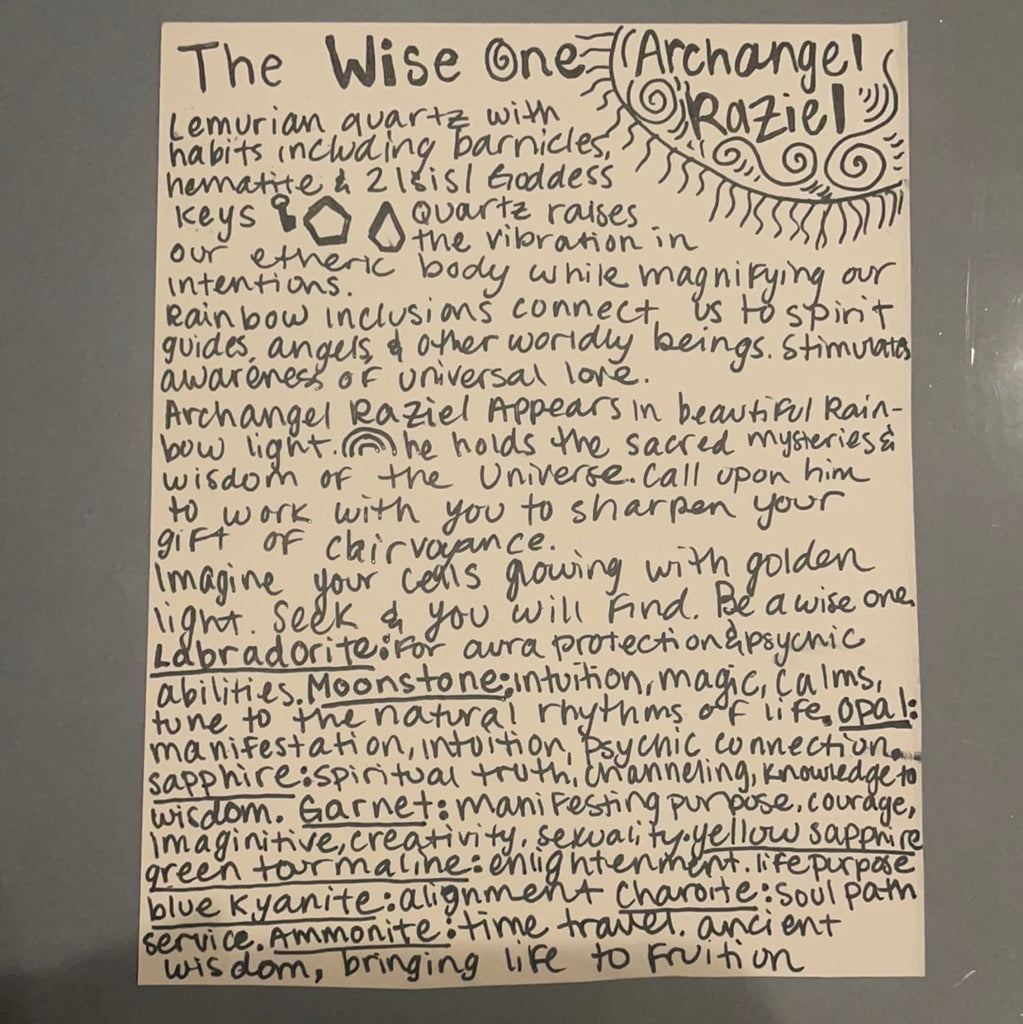 The Wise One
Archangel
Raziel
Lemurian quartz with
habits including barnicles,
hematite & 2 Isis Goddess
Keys
Quartz raises
the vibration in
our etheric body while magnifying our
intentions.
Rainbow inclusions connect us to spirit
guides, angels & other worldly beings. Stimulates
awareness of universal love.
Archangel Raziel Appears in beautiful Rain-
bow light. he holds the sacred mysteries &
wisdom of the Universe. Call upon him
to work with you to sharpen your
gift of clairvoyance.
Imagine your cells glowing with golden
light. Seek & you will find. Be a wise one.
Labradorite: For aura protection & psychic
abilities. Moonstone: intuition, magic, calms,
tune to the natural rhythms of life. Opal:
manifestation, intuition, psychic connection.
sapphire: spiritual truth, channeling, knowledge to
wisdom. Garnet: manifesting purpose, courage,
imaginitive, creativity, sexuality. yellow sapphire
green tourmaline: enlightenment. life purpose
blue Kyanite: alignment Charoite: Soul path
service. Ammonite: time travel. ancient
wisdom, bringing life to fruition